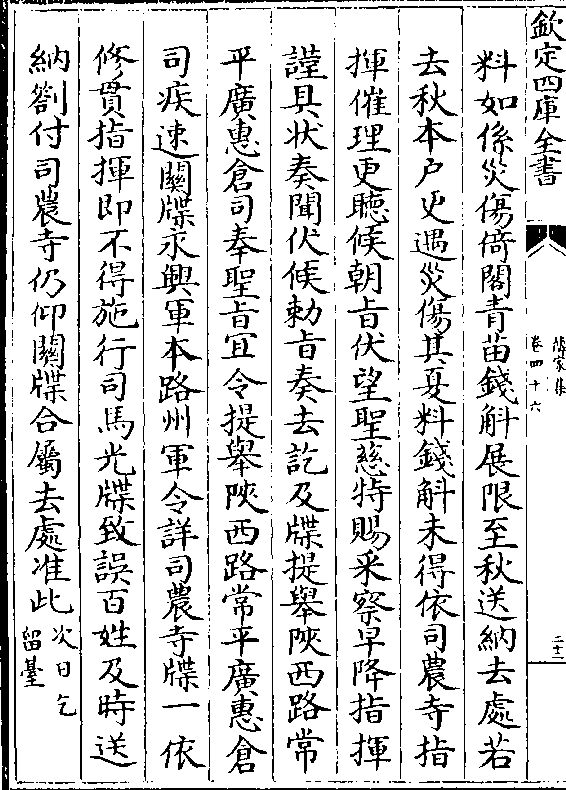 欽定四庫全書
傳家集
卷四十六
二十一
料如係災傷倚閣青苗錢斛展限至秋送納去處若
去秋本户更遇災傷其夏料錢斛未得依司農寺指
揮催理更聽候朝旨伏望聖慈特賜采察早降指揮
謹具狀奏聞伏候勅旨奏去訖及牒提舉陜西路常
平廣惠倉司奉聖旨宜令提舉陜西路常平廣惠倉
司疾速關牒永興軍本路州軍令詳司農寺牒一依
條貫指揮即不得施行司馬光牒致誤百姓及時送
納劄付司農寺仍仰關牒合屬去處准此次日乞
留臺